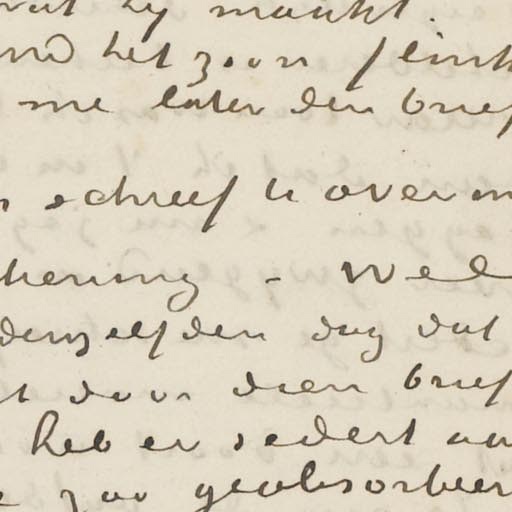 hy maakt.
het zoo'n flink
me later den brief
schreef U over m
kening - Wel
denzelfden dag dat
t door dien brief
heb er sedert aan
zoo geabsorbeer